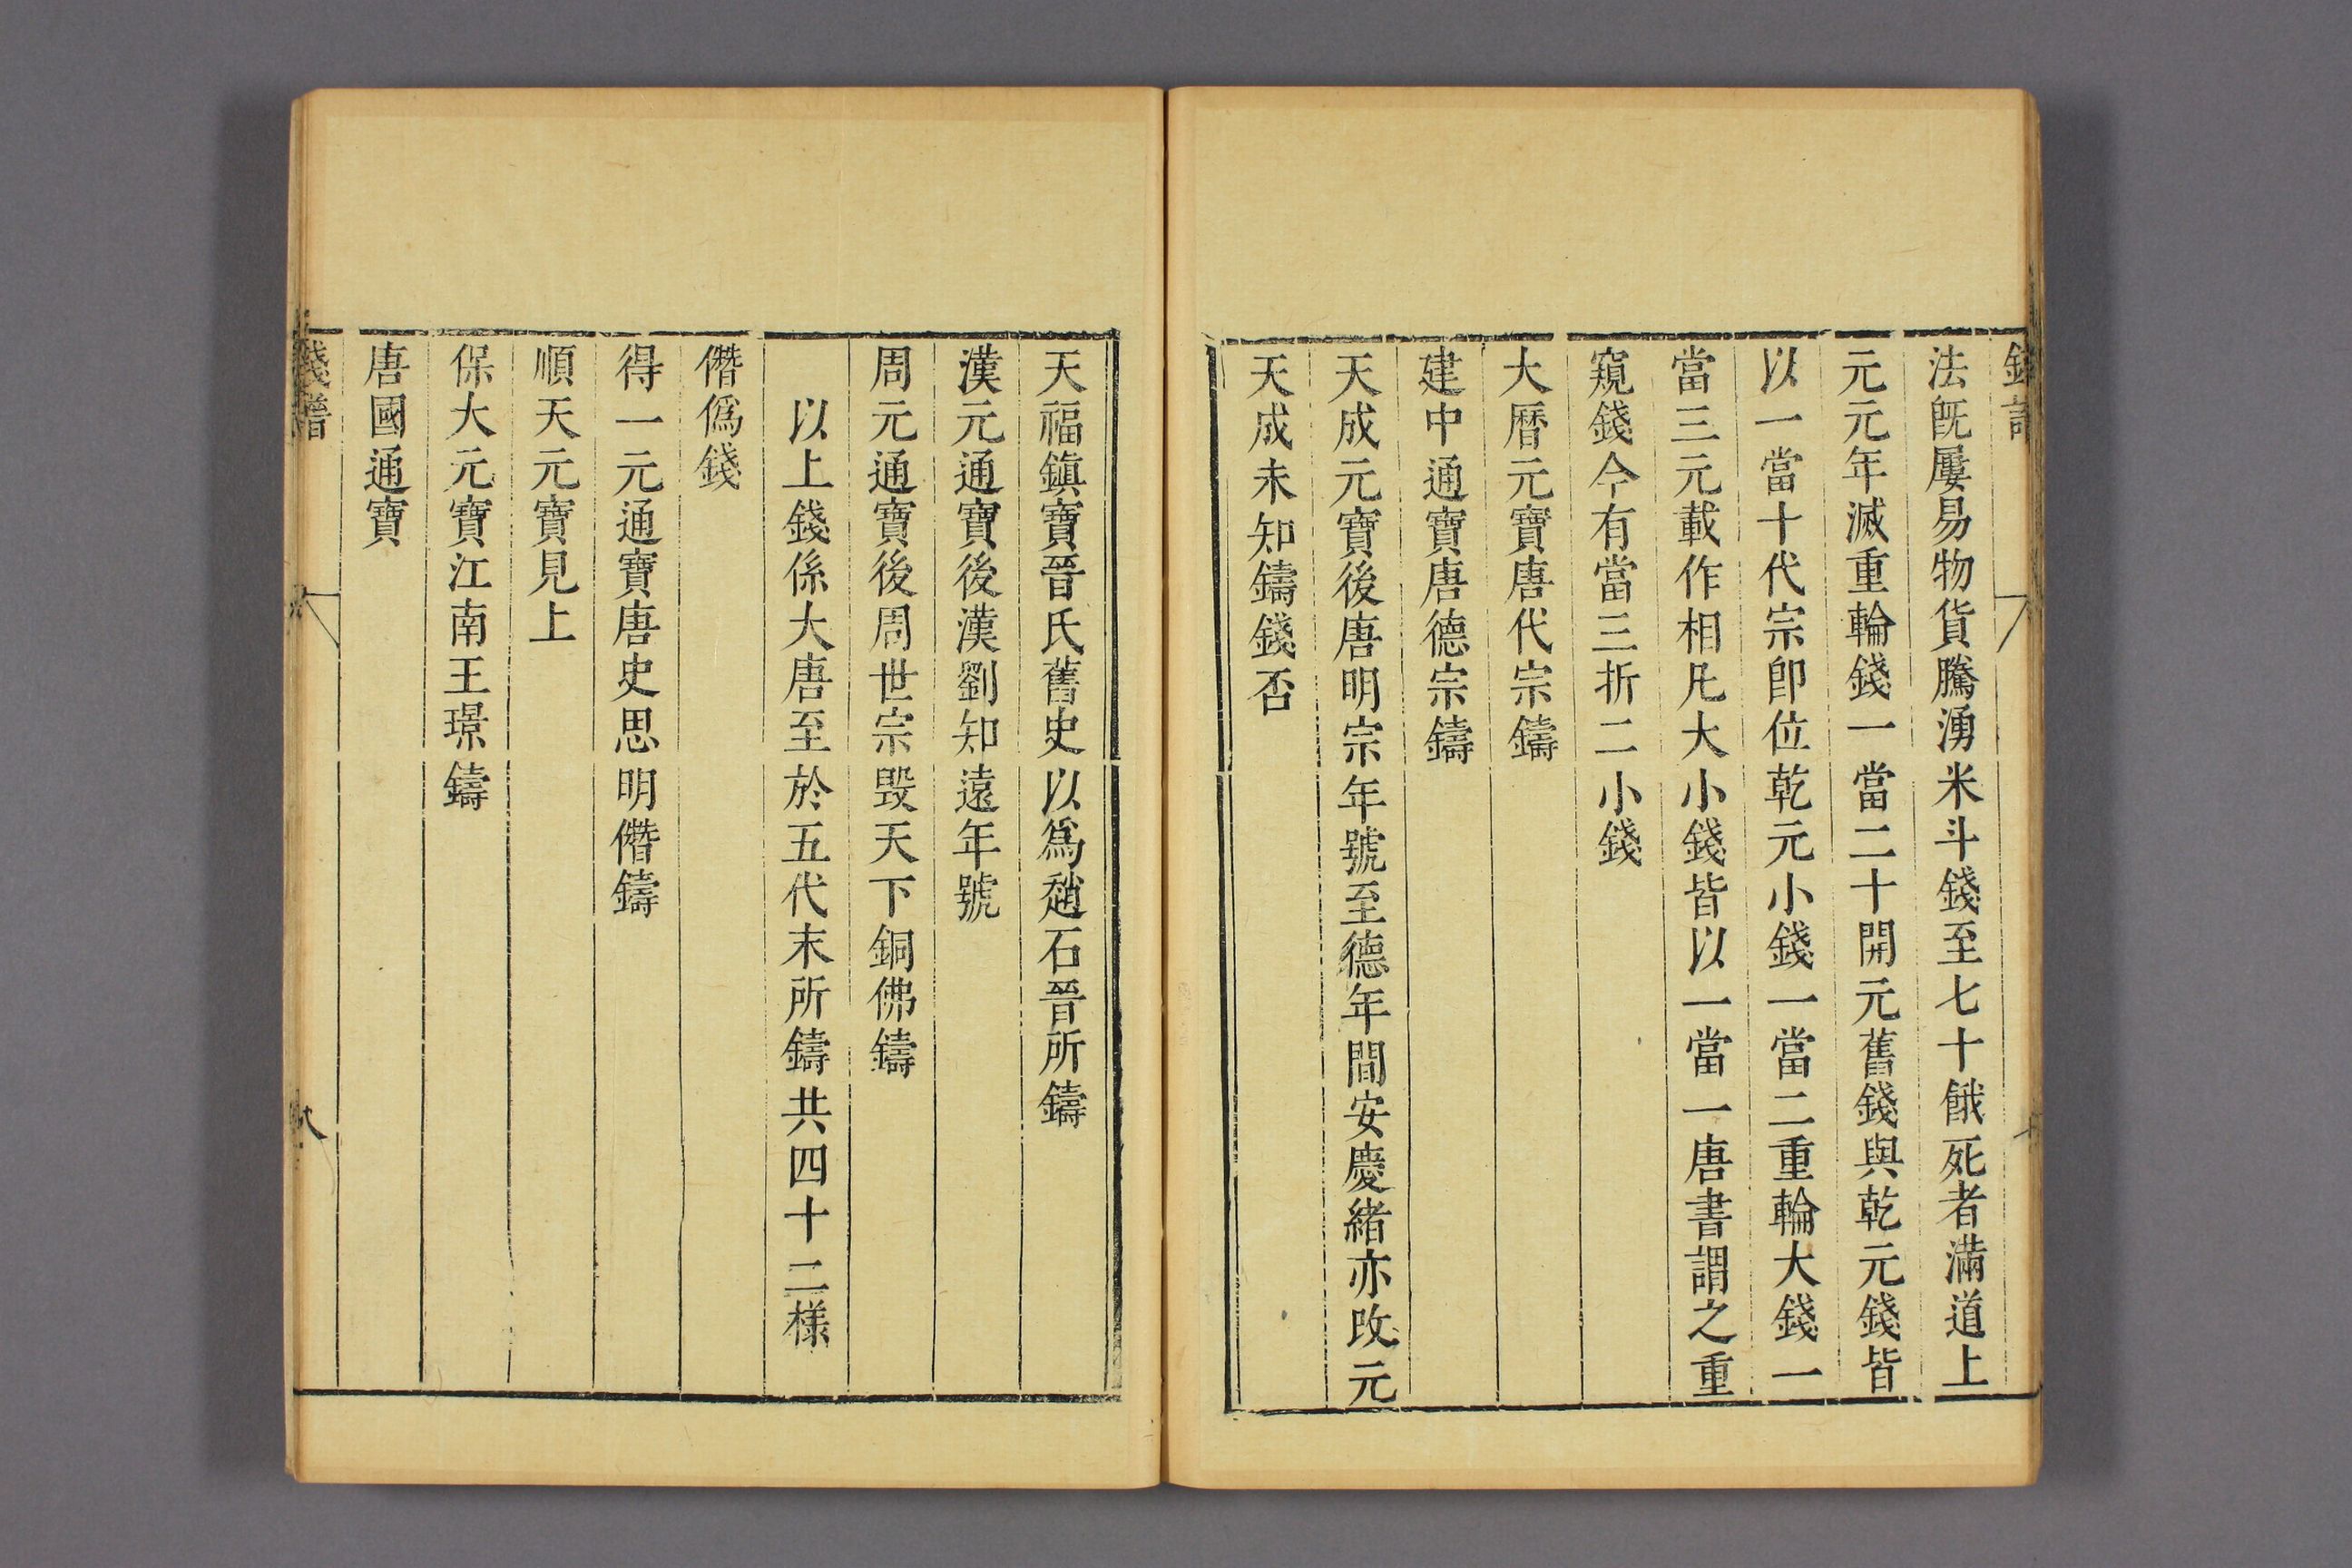 法旣屢易物貨騰湧米斗錢至七十餓死者滿道上
元元年滅重輪錢一當二十開元舊錢與乾元錢皆
以一當十代宗卽位乾元小錢一當二重輪大錢一
當三元載作相凡大小錢皆以一當一唐書謂之重
窺錢今有當三折二小錢
大曆元寶唐代宗鑄
建中通寶唐德宗鑄
天成元寶後唐明宗年號至德年間安慶緒亦改元
天成未知鑄錢否
天福鎭寶晉氏舊史以爲趙石晉所鑄
漢元通寶後漢劉知遠年號
周元通寶後周世宗毀天下銅佛鑄
以上錢係大唐至於五代末所鑄共四十二樣
僭僞錢
得一元通寶唐史思明僭鑄
順天元寶見上
保大元寶江南王璟鑄
唐國通寶
錢譜
八